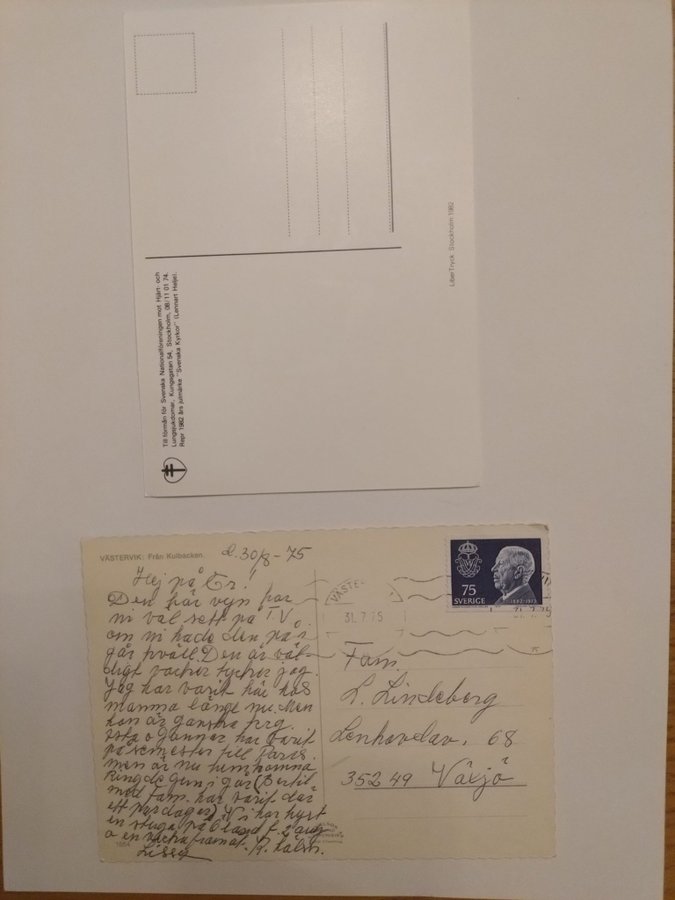 LiberTryck Stockholm 1982
Till förmån för Svenska Nationalföreningen mot Hjärt- och
Lungsjukdomar, Kungsgatan 54, Stockholm, 08/11 01 74.
Repr 1982 års julmärke "Svenska Kyrkor" (Lennart Helje).
VÄSTERVIK: Från Kulbacken
d. 30/8-75
Hej på Er!
Den här vyn har
ni väl sett på TV
om ni hade den på i
går kväll. Den är väl-
digt vacker tycker jag.
Jag har varit här hos
mamma länge nu. Men
hon är ganska
o Gunnar har varit
på semester till
men är nu hemkomna
Ringde Gun i går (Bertil
med Fam. har varit där
ett par dagar) Vi har hyrt
en stuga på Öland f.
o en vecka framåt.
Lisa
VÄSTE-
31.7.75
75
SVERIGE
1882-1973
Fam.
L. Lindeberg
68
352 49 Växjö